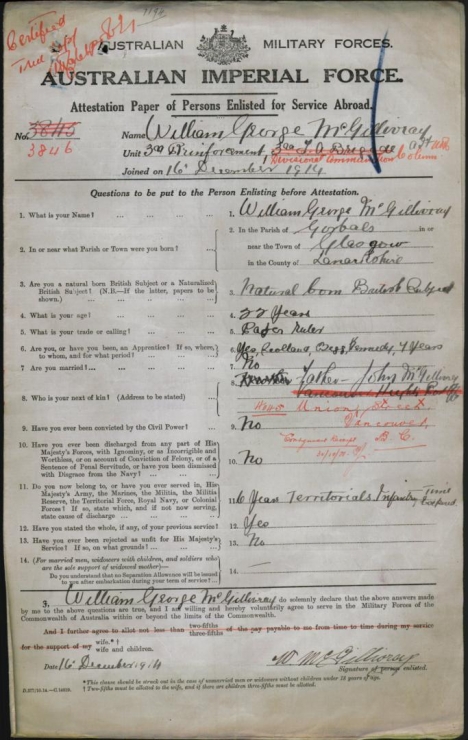 Certified
True Copy
AUSTRALIAN MILITARY FORCES.
AUSTRALIAN IMPERIAL FORCE.
Attestation Paper of Persons Enlisted for Service Abroad.
No. 3845 Name William George McGillivray
3846
Unit 3rd Reinforcement
Divisional Ammunition Column
Joined on 16 December 1914
Questions to be put to the Person Enlisting before Attestation.
1. What is your Name? 1. William George McGillivray
2. In or near what Parish or Town were you born? 2. In the Parish of Gorbals in or
near the Town of Glasgow
in the County of Lanarkshire
3. Are you a natural born British Subject or a Naturalized British Subject? (N.B.—If the latter, papers to be shown.) 3. Natural born British Subject
4. What is your age? 4. 22 Years
5. What is your trade or calling? 5. Paper Ruler
6. Are you, or have you been, an Apprentice? If so, where, to whom, and for what period? 6. Yes, Scotland, Kennedy, 7 Years
7. Are you married? 7. No
8. Who is your next of kin? (Address to be stated) 8. Father - John McGillivray
Union Street
Vancouver
B.C.
9. Have you ever been convicted by the Civil Power? 9. No
10. Have you ever been discharged from any part of His Majesty's Forces, with Ignominy, or as Incorrigible and Worthless, or on account of Conviction of Felony, or of a Sentence of Penal Servitude, or have you been dismissed with Disgrace from the Navy? 10. No
11. Do you now belong to, or have you ever served in, His Majesty's Army, the Marines, the Militia, the Militia Reserve, the Territorial Force, Royal Navy, or Colonial Forces? If so, state which, and if not now serving, state cause of discharge 11. 6 Years Territorials Infantry Time Expired
12. Have you stated the whole, if any, of your previous service? 12. Yes
13. Have you ever been rejected as unfit for His Majesty's Service? If so, on what grounds? 13. No
14. (For married men, widowers with children, and soldiers who are the sole support of widowed mother)—
Do you understand that no Separation Allowance will be issued to you after embarkation during your term of service? 14. —
I, William George McGillivray do solemnly declare that the above answers made
by me to the above questions are true, and I am willing and hereby voluntarily agree to serve in the Military Forces of the
Commonwealth of Australia within or beyond the limits of the Commonwealth.
And I further agree to allot not less than two-fifths three-fifths of the pay payable to me from time to time during my service
for the support of my wife.*†
wife and children.
Date 16 December 1914 W. McGillivray
Signature of person enlisted.
*This clause should be struck out in the case of unmarried men or widowers without children under 18 years of age.
†Two-fifths must be allotted to the wife, and if there are children three-fifths must be allotted.